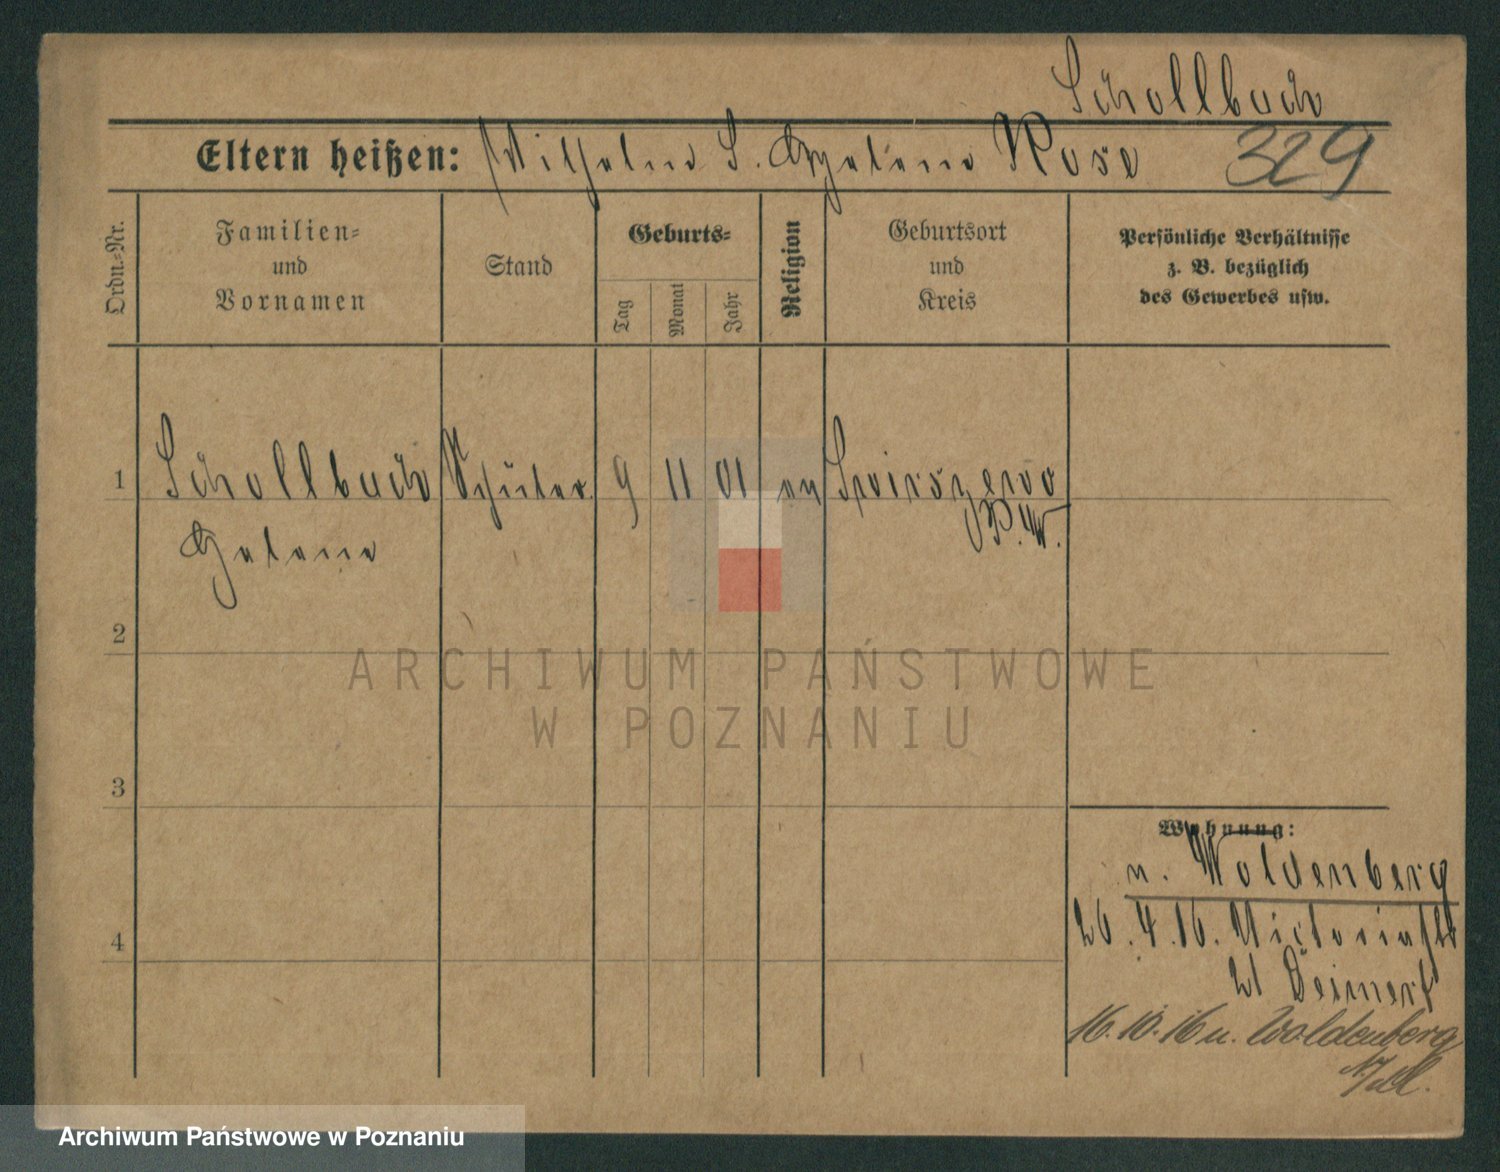 Schollbach
Eltern heißen: Wilhelm S. Helene Rose 329
Ordn.-Nr.
Familien-
und
Vornamen
Stand
Geburts-
Tag
Monat
Jahr
Religion
Geburtsort
und
Kreis
Persönliche Verhältnisse
z. B. bezüglich
des Gewerbes usw.
1 Schollbach Schüler 9 11 01 ev
Helene
2
3
4
Wohnung:
n. Woldenberg
26.4.16. Victoriastr
21
16.10.16 n. Woldenberg
N/M.
ARCHIWUM PAŃSTWOWE
W POZNANIU
Archiwum Państwowe w Poznaniu